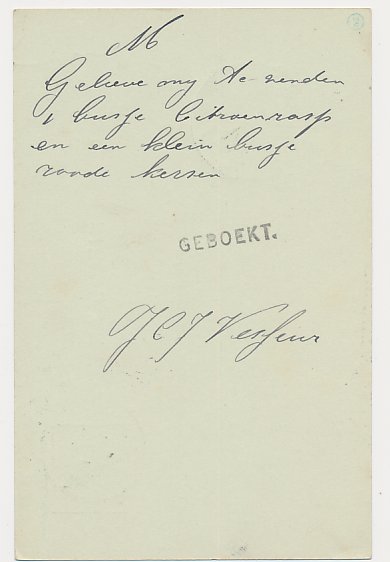 M
Gelieve my te zenden
1 busje Citroenrasp
en een klein busje
roode kersen
GEBOEKT.